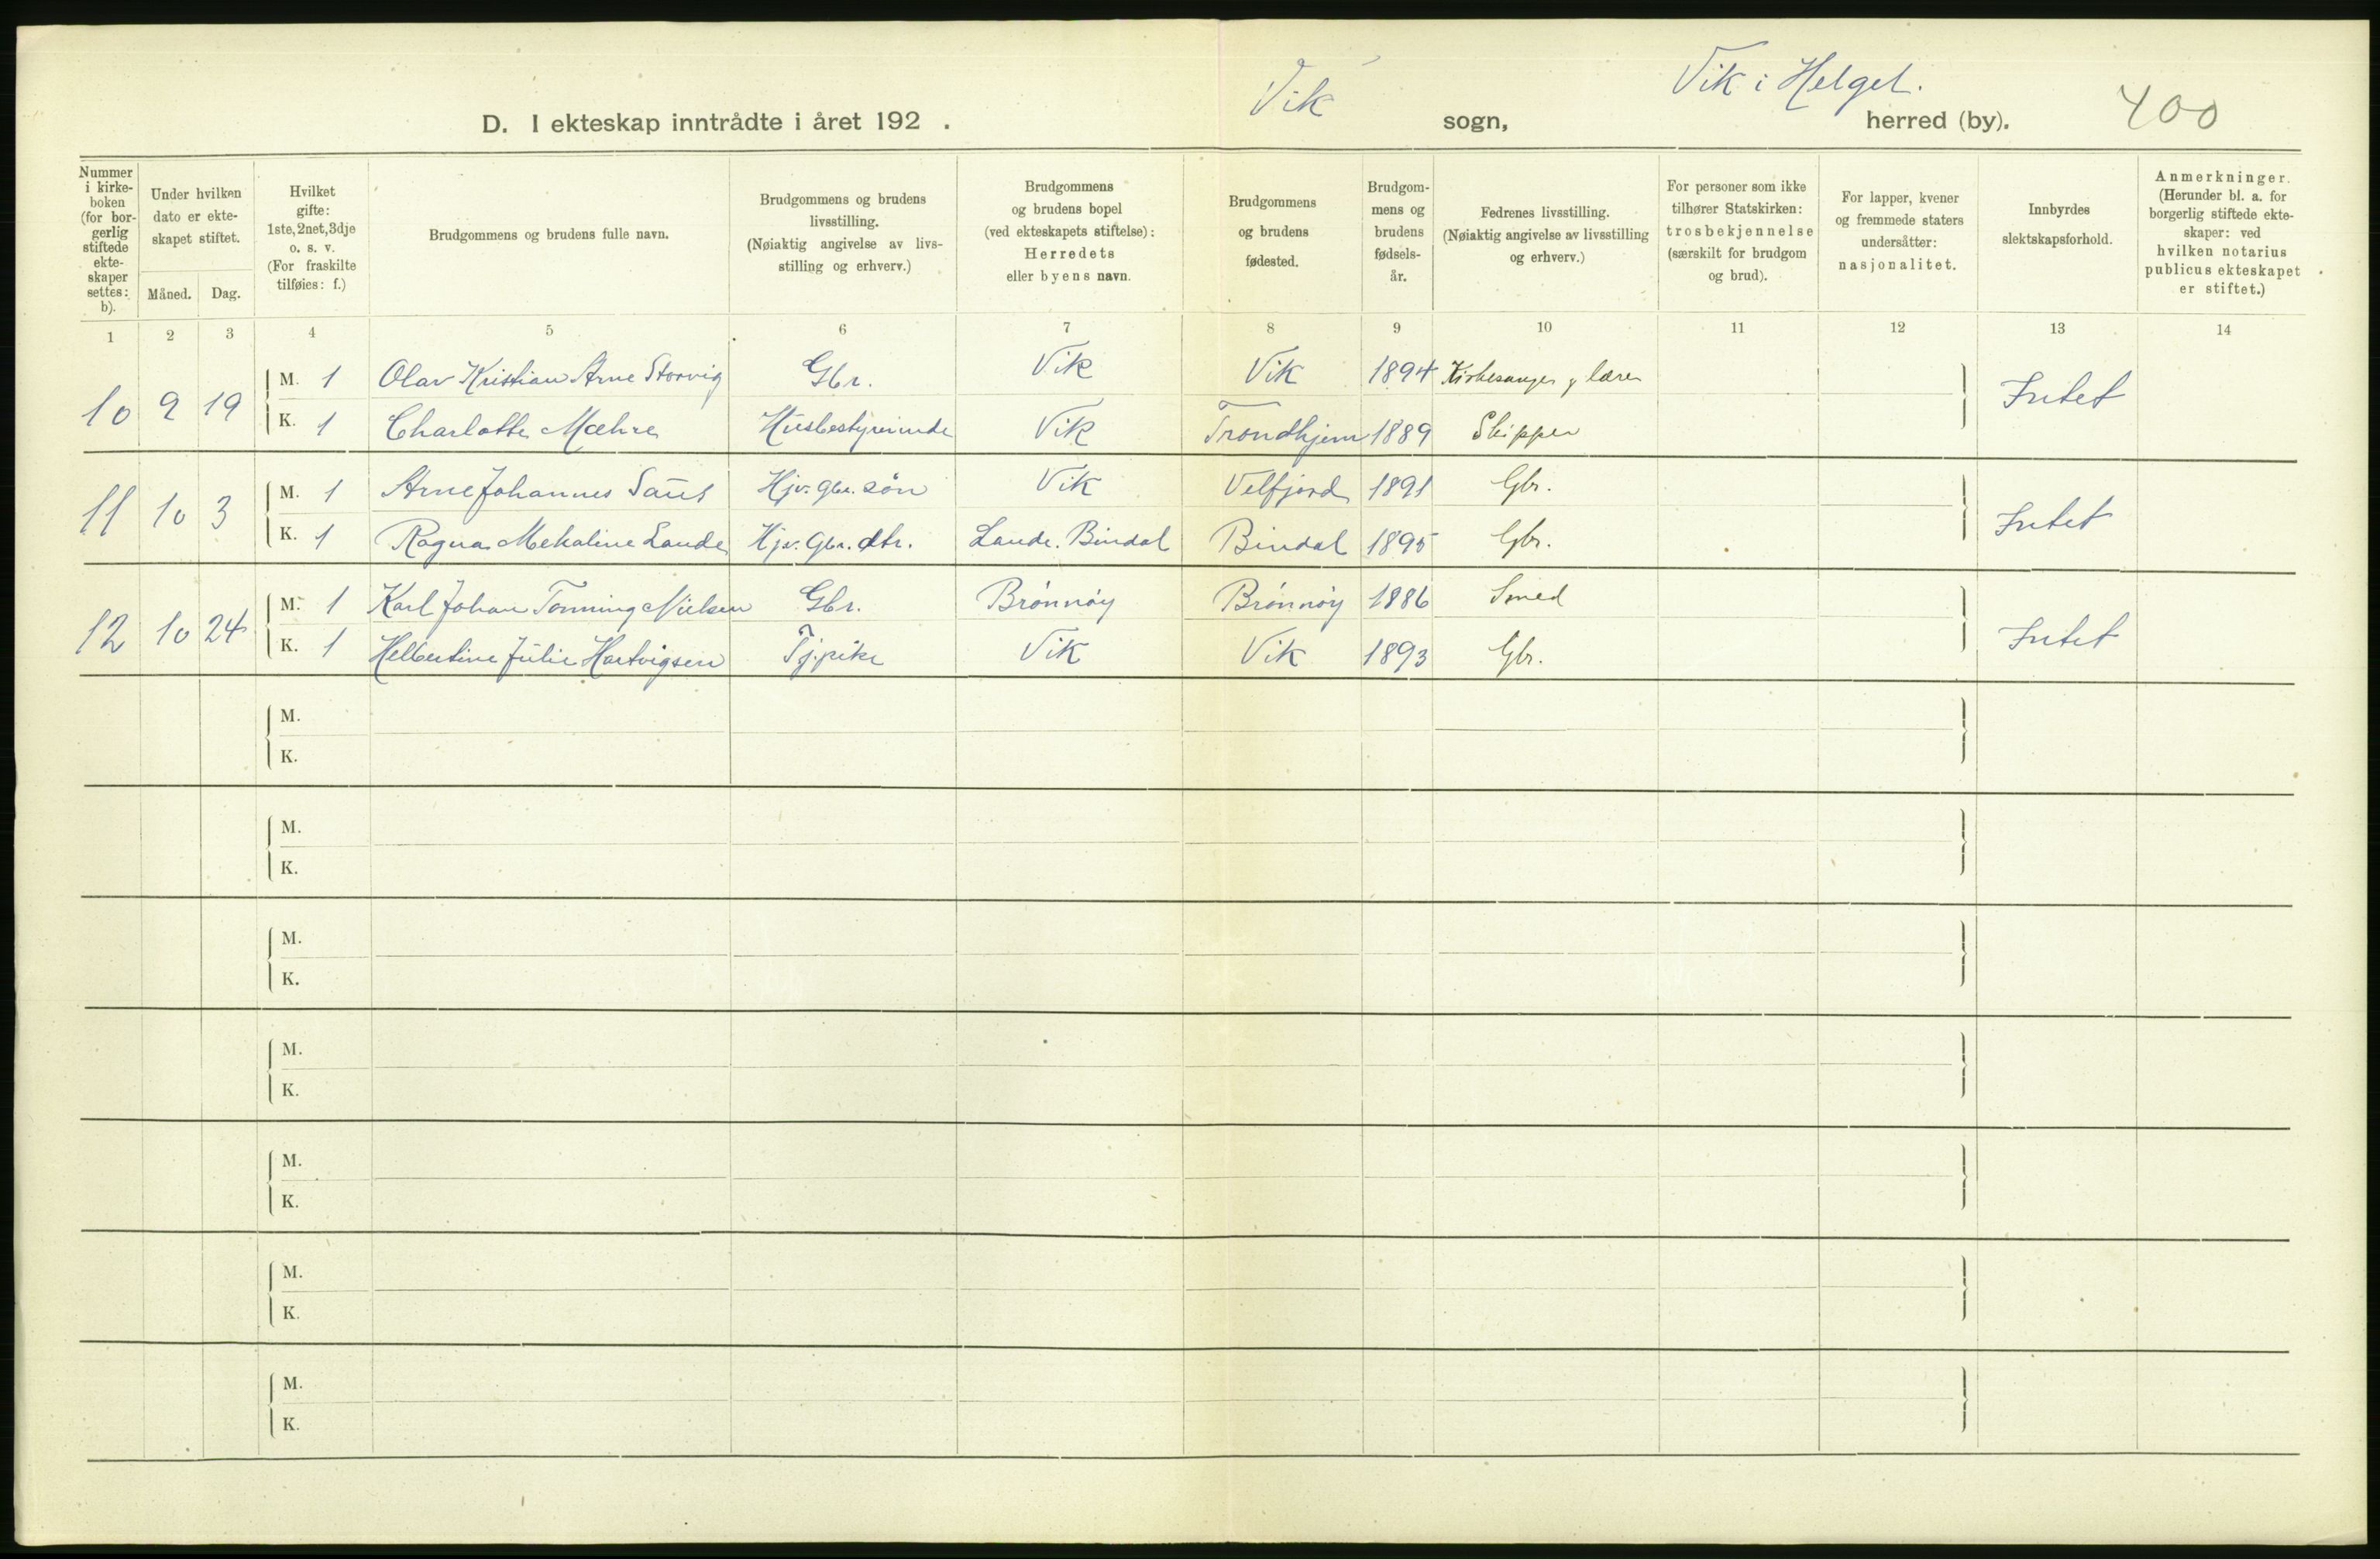 Vik Vik i Helgel. 400
D. I ekteskap inntrådte i året 192 . sogn, herred (by).
Nummer
i kirke-
boken
(for bor-
gerlig
stiftede
ekte-
skaper
settes:
b).
Under hvilken
dato er ekte-
skapet stiftet.
Måned. Dag.
Hvilket
gifte:
1ste, 2net, 3dje
o. s. v.
(For fraskilte
tilføies: f.)
Brudgommens og brudens fulle navn.
Brudgommens og brudens
livsstilling.
(Nøiaktig angivelse av livs-
stilling og erhverv.)
Brudgommens
og brudens bopel
(ved ekteskapets stiftelse):
Herredets
eller byens navn.
Brudgommens
og brudens
fødested.
Brudgom-
mens og
brudens
fødsels-
år.
Fedrenes livsstilling.
(Nøiaktig angivelse av livsstilling
og erhverv.)
For personer som ikke
tilhører Statskirken:
trosbekjennelse
(særskilt for brudgom
og brud).
For lapper, kvener
og fremmede staters
undersåtter:
nasjonalitet.
Innbyrdes
slektskapsforhold.
Anmerkninger.
(Herunder bl. a. for
borgerlig stiftede ekte-
skaper: ved
hvilken notarius
publicus ekteskapet
er stiftet.)
1 2 3 4 5 6 7 8 9 10 11 12 13 14
10 9 19 M. 1 Olav Kristian Arne Storvig Gbr. Vik Vik 1894 Kirkesanger g lærer Intet
K. 1 Charlotte Mæhre Husbestyrerinde Vik Trondhjem 1889 Skipper
11 10 3 M. 1 Arne Johannes Saus Hjv. gbr. søn Vik Velfjord 1891 Gbr. Intet
K. 1 Ragna Mekaline Lande Hjv. Gbr. dtr. Lande. Bindal Bindal 1895 Gbr.
12 10 24 M. 1 Karl Johan Tønning Nielsen Gbr. Brønnøy Brønnøy 1886 Smed Intet
K. 1 Helbertine Julie Hartvigsen Tj.pike Vik Vik 1893 Gbr.
M.
K.
M.
K.
M.
K.
M.
K.
M.
K.
M.
K.
M.
K.